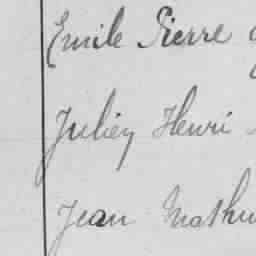 Emile Pierre
Julien Henri
Jean